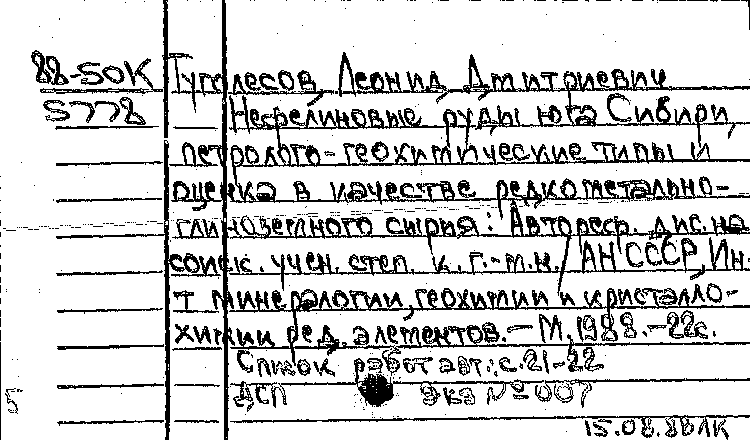 88-50К Туголесов, Леонид Дмитриевич
5778 Нефелиновые руды юга Сибири,
петролого-геохимические типы и
оценка в качестве редкометально-
глиноземного сырья: Автореф. дис. на
соиск. учен. степ. к. г.-м.н. / АН СССР, Ин-
т минералогии, геохимии и кристалло-
химии ред. элементов. – М., 1988. – 22с.
Список работ авт.: с. 21-22
ДСП Экз № 007
5
15.08.88ЛК